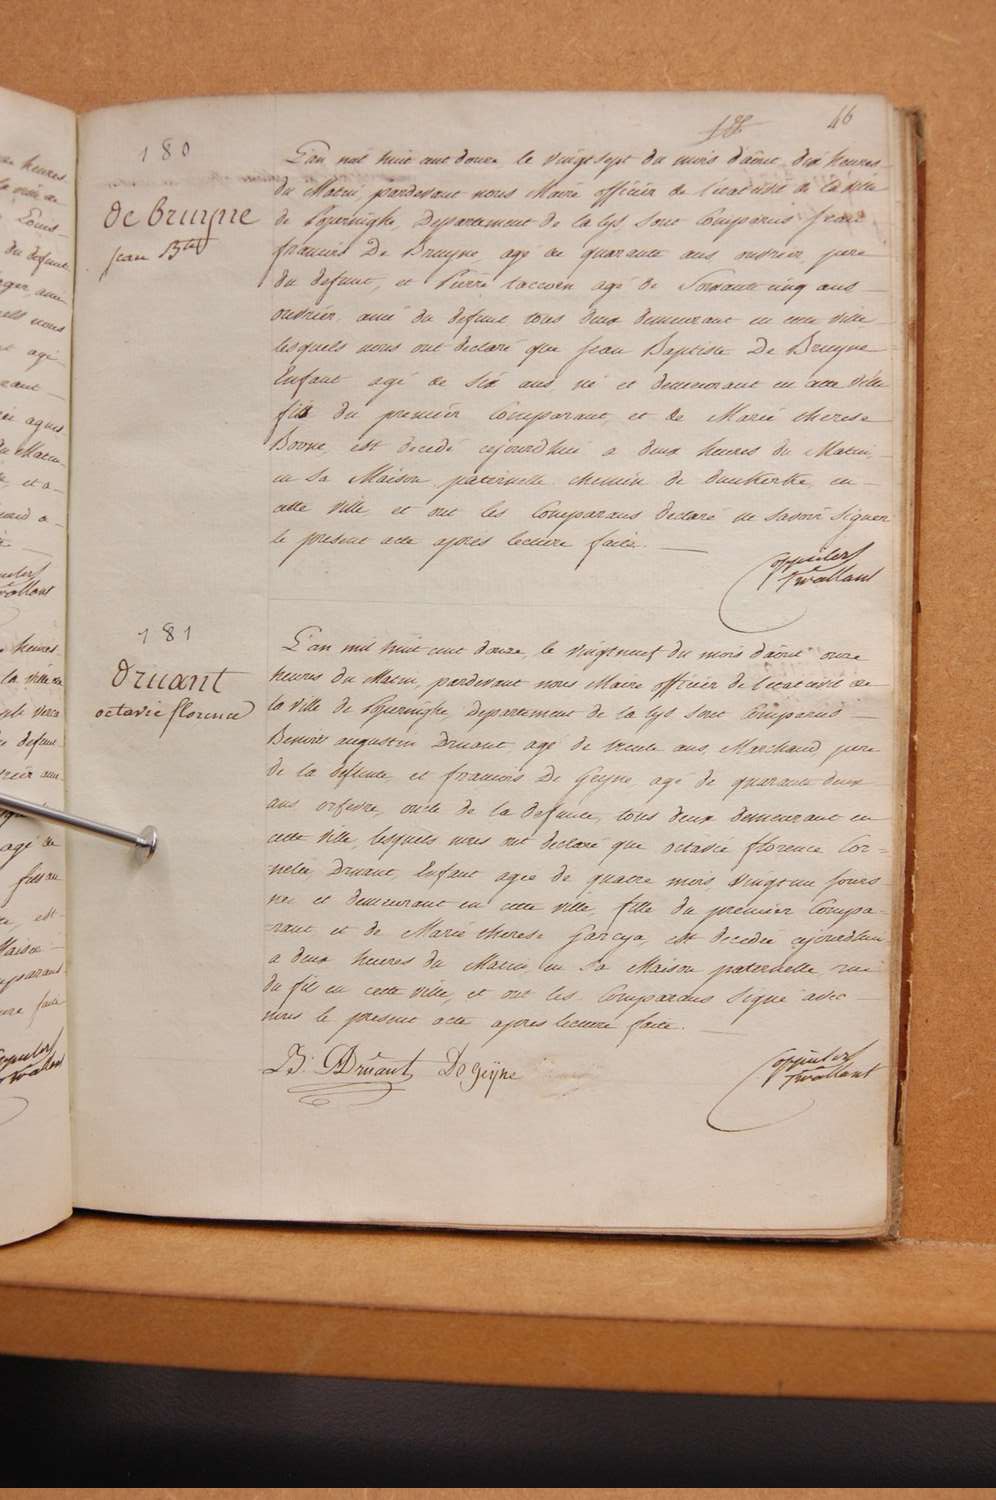 46
180
De bruyne
Jean Bte
L'an mil huit cent douze, le vingt sept du mois d'août, dix heures
du Matin, pardevant nous Maire officier de l'état civil de la ville
de Poperinghe, Departement de la Lys, sont Comparus Jean
francois De Bruyne, agé de quarante ans ouvrier, pere
du defunt, et Pierre agé de Soixante cinq ans
ouvrier, ami du defunt, tous deux demeurant en cette ville
lesquels nous ont declaré que Jean Baptiste De Bruyne
Enfant agé de six ans, né et demeurant en cette ville
fils du premier Comparant, et de Marie therese
est decedé cejourdhui a deux heures du Matin,
en sa Maison paternelle chemin de dunkerke, en
cette ville et ont les Comparans declaré ne savoir signer
le present acte apres lecture faite.
181
Druant
octavie florence
L'an mil huit cent douze, le vingt neuf du mois d'août onze
heures du Matin, pardevant nous Maire officier de l'état civil de
la ville de Poperinghe, Departement de la Lys sont Comparus
Benoit augustin Druant, agé de trente ans, Marchand, pere
de la defunte et francois De Geyne, agé de quarante deux
ans orfevre, oncle de la defunte, tous deux demeurant en
cette ville, lesquels nous ont declaré que octavie florence Cor=
nelie Druant, Enfant agée de quatre mois vingt un jours
née et demeurant en cette ville, fille du premier Compa=
rant et de Marie therese Garcya, est decedée cejourdhui
a deux heures du Matin, en sa Maison paternelle rue
du fil en cette ville, et ont les Comparans signé avec
nous le present acte apres lecture faite.
B. A Druant De geÿne